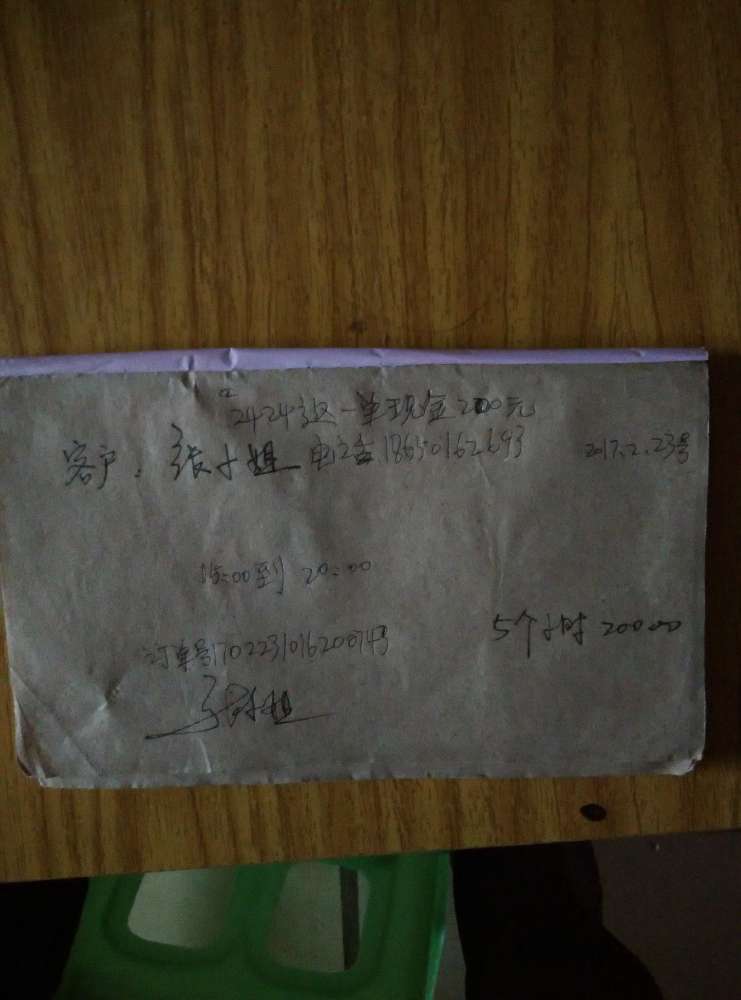 2424 一单现金200元
客户：张小姐 电话18650162693 2017.2.23号
15:00到 20:00
5个小时 200.00
订单号170223101620074号
张小姐